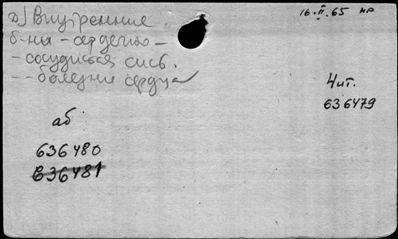 д) Внутренние
б-ни - сердечно -
- сосудистая сист.
-- болезни сердца
16.II.65 нр
Чит.
636479
аб
636480
636481